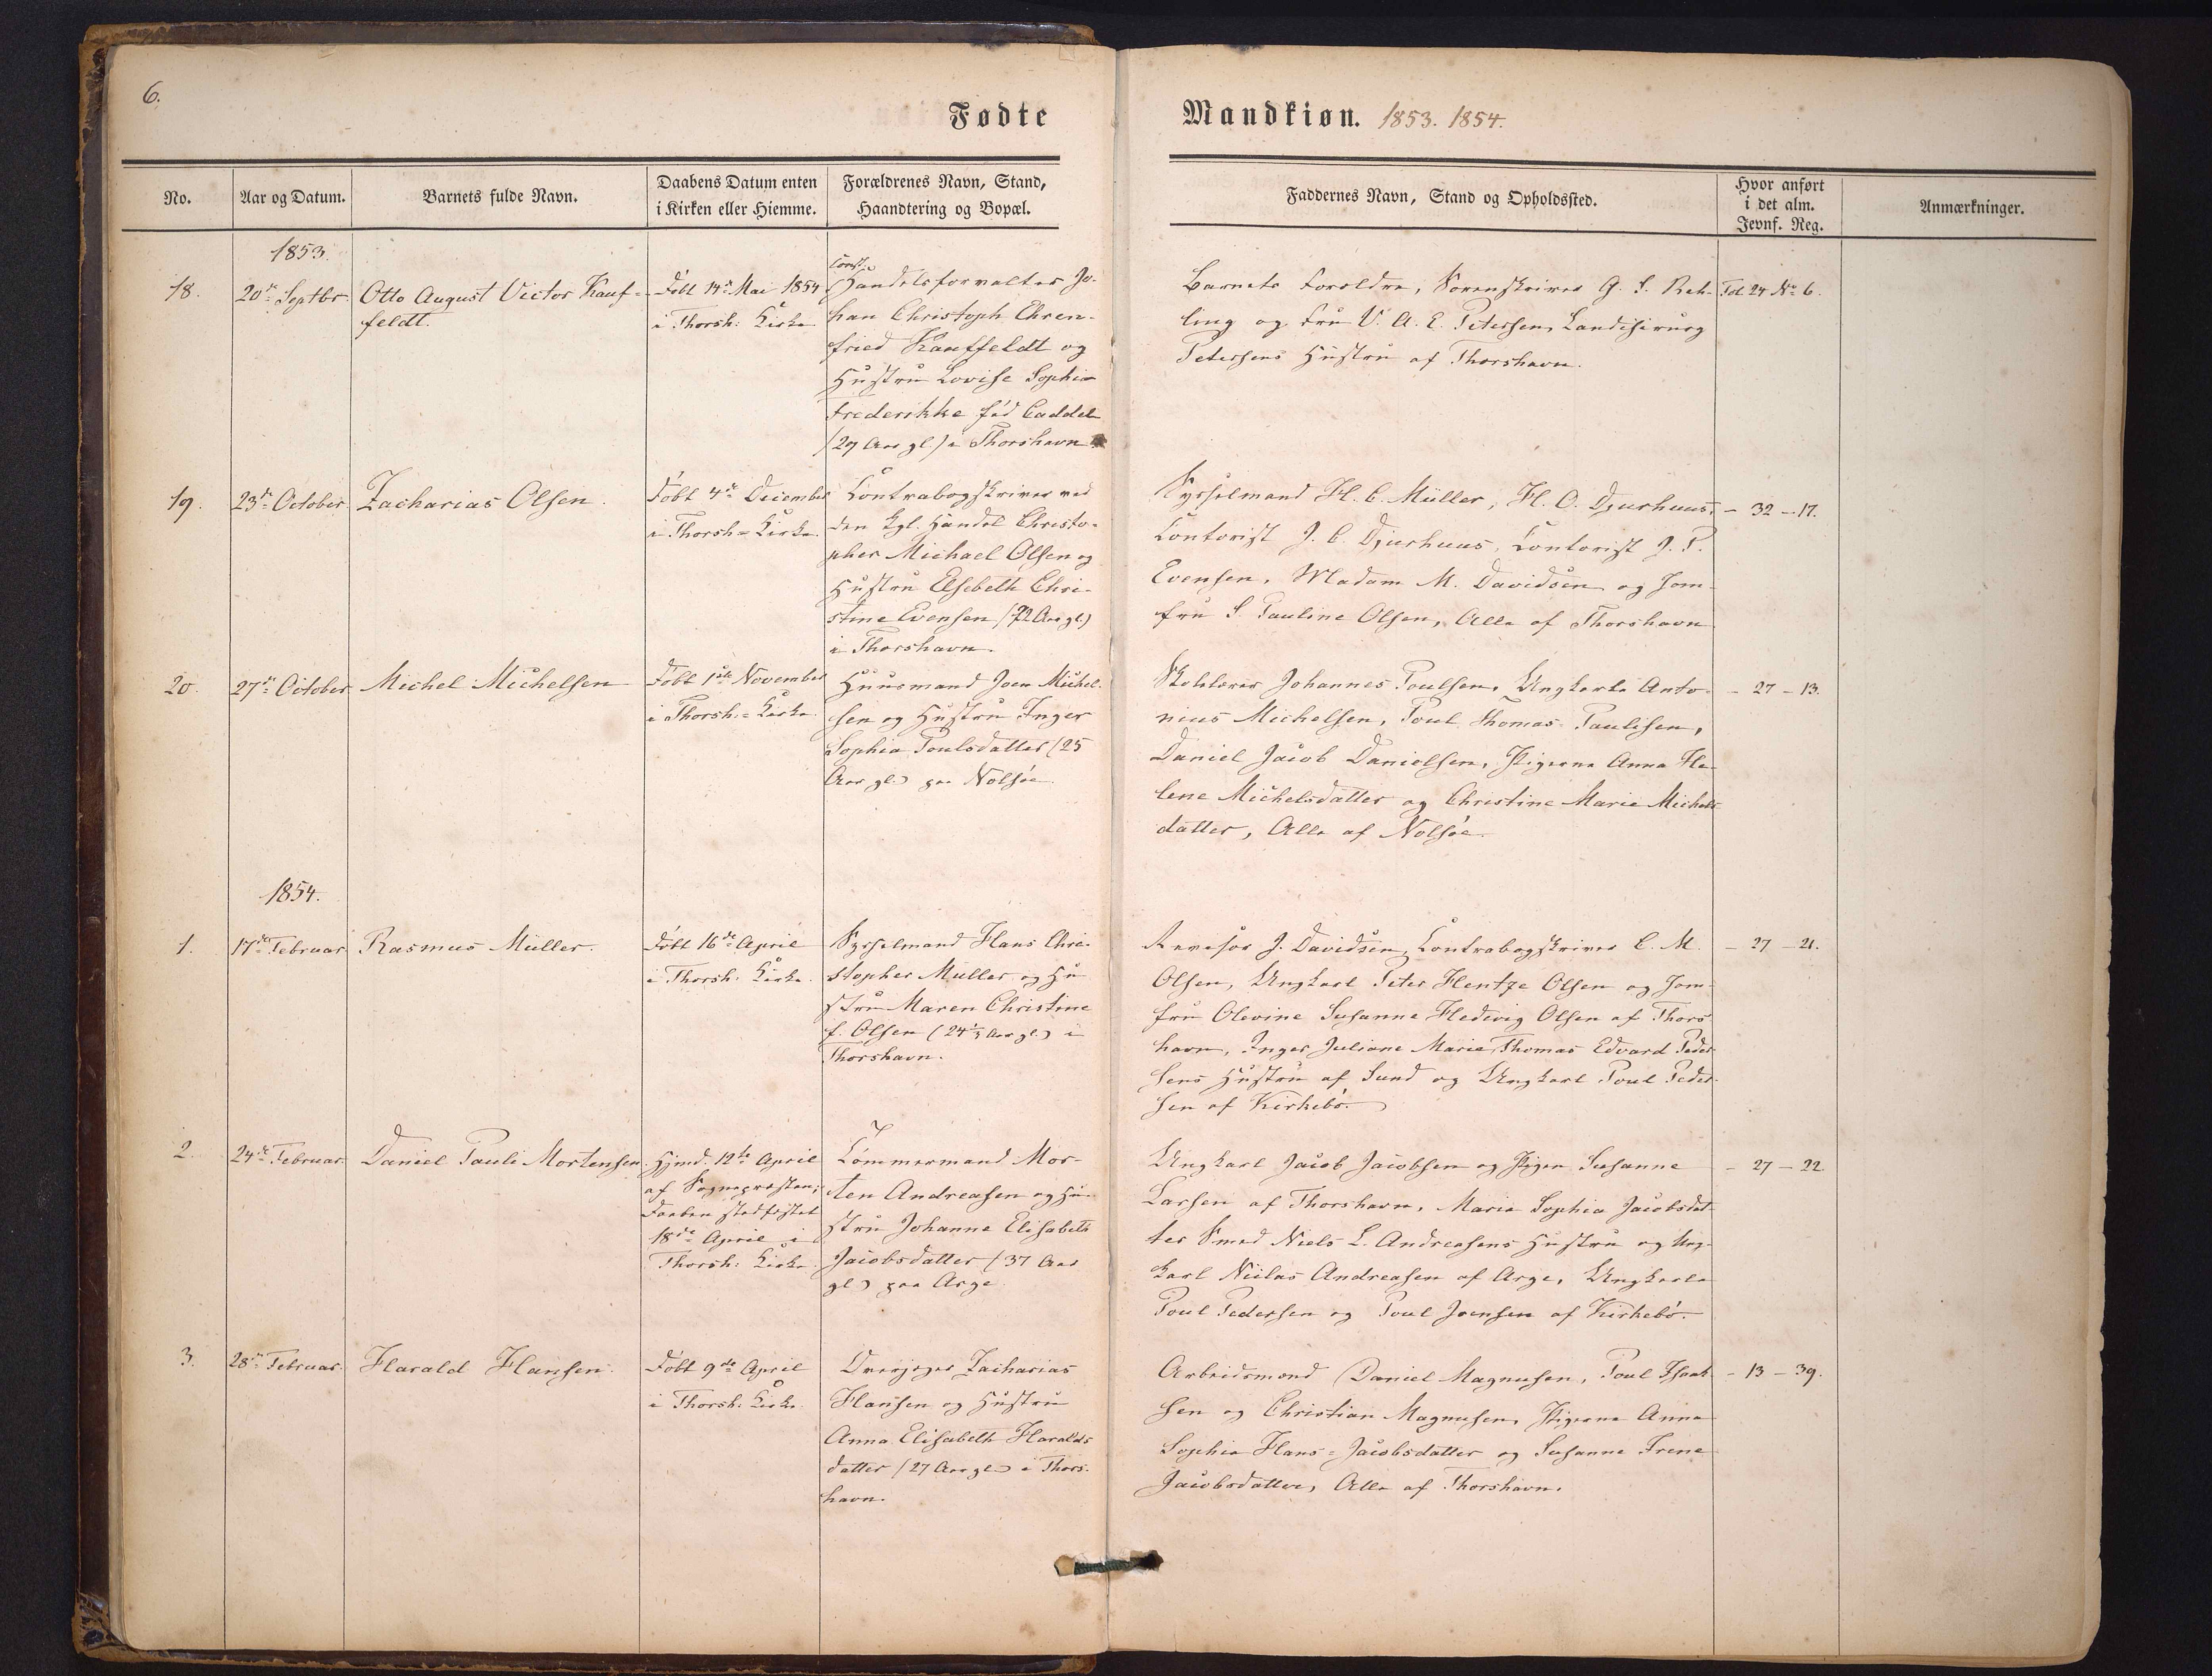 6.
Fødte
Mandkiøn. 1853. 1854.
No.
Aar og Datum.
Barnets fulde Navn.
Daabens Datum enten
i Kirken eller Hiemme.
Forældrenes Navn, Stand,
Haandtering og Bopæl.
Faddernes Navn, Stand og Opholdssted.
Hvor anført
i det alm.
Jevnf. Reg.
Anmærkninger.
1853.
18.
20de Septbr.
Otto August Victor Kauf-
feldt.
Døbt 14de Mai 1854
i Thorsh: Kirke
Const.
Handelsforvalter Jo-
han Christoph Ehren-
fried Kauffeldt og
Hustru Lovise Sophie
Frederikke fød Caddel
(29 Aar gl.) i Thorshavn
Barnets Forældre, Sorenskriver G. F. Reh-
ling og Fru V. A. E. Petersen, Landchirurg
Petersens Hustru af Thorshavn.
Fol 24 No 6.
19.
23de October
Zacharias Olsen.
Døbt 4de December
i Thorsh= Kirke.
Contrabogskriver ved
den Kgl. Handel Christo-
pher Michael Olsen og
Hustru Elsebeth Chri-
stine Evensen (22 Aar gl.)
i Thorshavn.
Sysselmand H. C. Müller, H. O. Djurhuus,
Contorist J. C. Djurhuus, Contorist J. P.
Evensen, Madam M. Davidsen og Jom-
fru S. Pauline Olsen, Alle af Thorshavn
- 32 - 17.
20.
27de October
Michel Michelsen
Døbt 1ste November
i Thorsh.= Kirke.
Huusmand Joen Michel-
sen og Hustru Inger
Sophia Poulsdatter (25
Aar gl.) paa Nolsøe.
Skolelærer Johannes Poulsen, Ungkarle Anto-
nius Michelsen, Poul Thomas Paulisen,
Daniel Jacob Danielsen, Pigerne Anna He-
lene Michelsdatter og Christine Marie Michels-
datter, Alle af Nolsøe.
- 27 - 13.
1854.
1.
17de Februar
Rasmus Müller.
Døbt 16de April
i Thorsh: Kirke.
Sysselmand Hans Chri-
stopher Müller og Hu-
stru Maren Christine
f. Olsen (24 Aar gl.) i
Thorshavn.
Revisor J. Davidsen, Contrabogskriver C. M.
Olsen, Ungkarl Peter Hentze Olsen og Jom-
fru Olevine Susanne Hedevig Olsen af Thors-
havn, Inger Juliane Marie, Thomas Edvard Peder-
sens Hustru af Sund og Ungkarl Poul Peder-
sen af Kirkebø.
- 27 - 21.
2.
24de Februar.
Daniel Pauli Mortensen
Hjmd. 12te April
af Sognepræsten;
Daaben stadfæstet
18de April i
Thorsh: Kirke.
Tømmermand Mor-
ten Andreasen og Hu-
stru Johanne Elisabeth
Jacobsdatter (37 Aar
gl.) paa Arge
Ungkarl Jacob Jacobsen og Pigen Susanne
Larsen af Thorshavn, Maria Sophia Jacobsdat-
ter Smed Niels L. Andreasens Hustru og Ung-
karl Niclas Andreasen af Arge, Ungkarle
Poul Pedersen og Poul Joensen af Kirkebø.
- 27 - 22
3.
28de Februar.
Harald Hansen.
Døbt 9de April
i Thorsh: Kirke
Zacharias
Hansen og Hustru
Anna Elisabeth Haralds-
datter (27 Aar gl.) i Thors-
havn.
Arbeidsmænd Daniel Magnusen, Poul Isak-
sen og Christian Magnusen, Pigerne Anna
Sophia Hans=Jacobsdatter og Susanne Irene
Jacobsdatter, Alle af Thorshavn.
- 13 - 39.